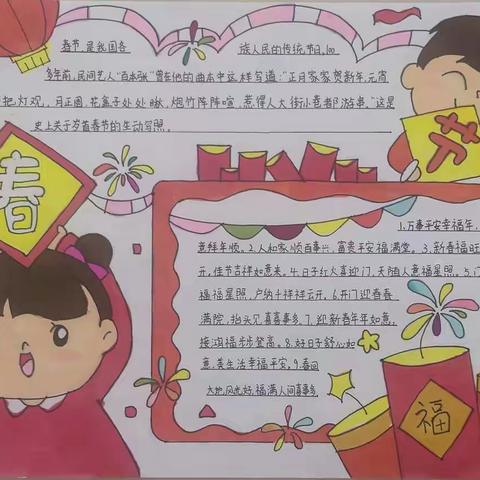 春
节
春节,是我国各 族人民的传统节日,100
多年前,民间艺人"百本张"曾在他的曲本中这样写道:"正月家家贺新年,元宵
把灯观,月正圆,花盒子处处瞅,炮竹阵阵喧,惹得人大街小巷都游串。"这是
史上关于岁首春节的生动写照。
1.万事平安幸福年,
意拜年顺。2.人和家顺百事兴,富贵平安福满堂。3.新春福旺
开,佳节吉祥如意来。4.日子红火喜迎门,天随人意福星照。5.门
福福星照,户纳千祥祥云开。6.开门迎春春
满院,抬头见喜喜事多。7.迎新春年年如意,
接鸿福步步登高。8.好日子舒心如
意,美生活幸福平安。9.春回
大地风光好,福满人间喜事多
福